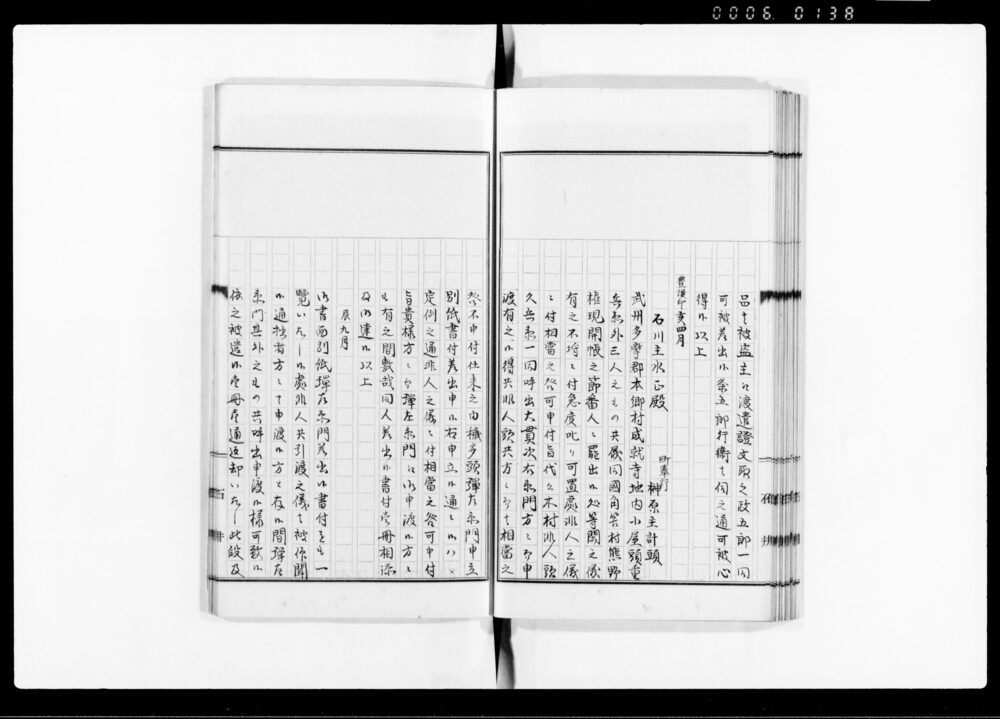 0006 0138
品者被盗主江渡遣證文取之政五郎一同
可被差出候条五郎行衛者伺之通可被心
得候以上
亥四月
石川主水正殿
町奉行
榊原主計頭
武州多摩郡本郷村成就寺地内小屋頭重
兵衛外三人之もの共儀同國角筈村熊野
権現開帳之節番人ニ罷出候処等閑之儀
有之不埒ニ付急度叱り可置處非人之儀
ニ付相當之咎可申付旨代々木村非人頭
久兵衛一同呼出大貫次右衛門方ニ而申
渡有之候得共非人頭共方ニ而者相當之
咎不申付仕来之由穢多頭弾左衛門申立
別紙書付差出申候右申立候通ニ候ハヽ
定例之通非人之儀ニ付相當之咎可申付
旨貴様方ニ而弾左衛門江御申渡候方ニ
も有之間敷哉同人差出候書付壱冊相添
及御達候以上
辰九月
御書面別紙弾左衛門差出候書付をも一
覧いたし候處非人共引渡之儀者被仰聞
候通拙者方ニて申渡候方と存候間弾左
衛門其外之もの共呼出申渡候様可致候
依之被遣候壱冊左通返却いたし此段及